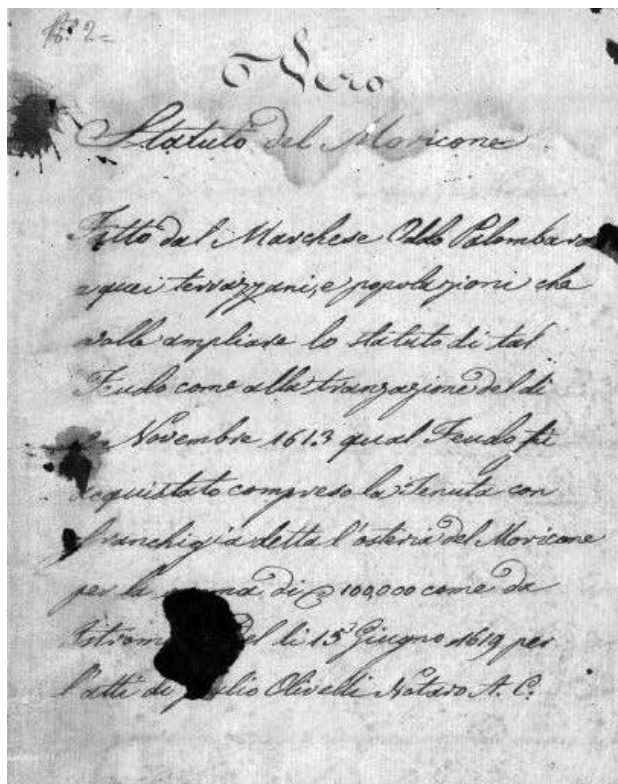 N.º 2.=
Vero
Statuto del Moricone
Fatto dal Marchese Oddo Palombara
a quei terrazzani, e popolazioni che
volle ampliare lo statuto di tal
Feudo come alla tranzazione del di
Novembre 1613 qual Feudo fù
acquistato compreso la Tenuta con
franchigia detta l'osteria del Moricone
per la di 100,000 come da
del li 15 Giugno 1619 per
l'atti di Olivelli Notaro A. C.